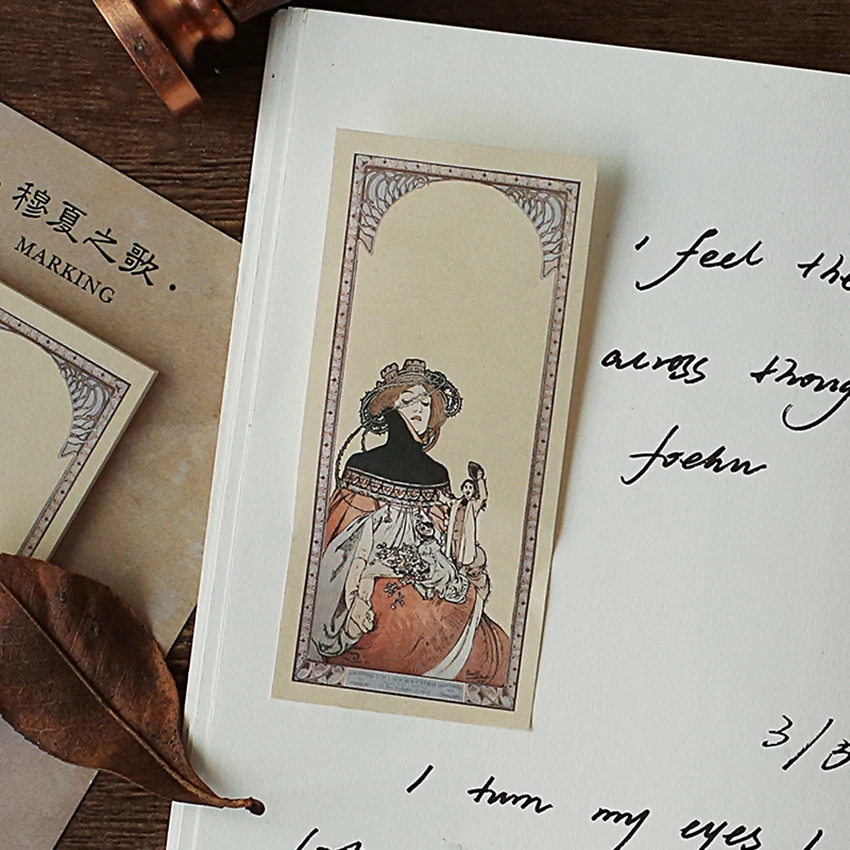 穆夏之歌·
MARKING
I feel the
across
foehn
3/3
I turn my eyes